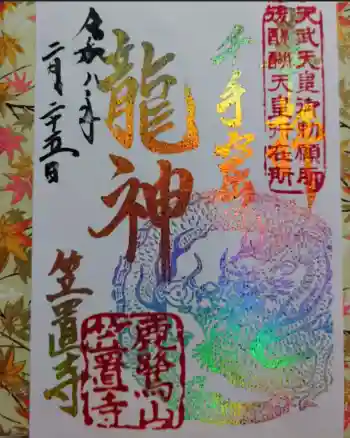 天武天皇御勅願所
後醍醐天皇行在所
千手窟
龍神
令和八年
二月二十五日
笠置寺
鹿鷺山
笠置寺